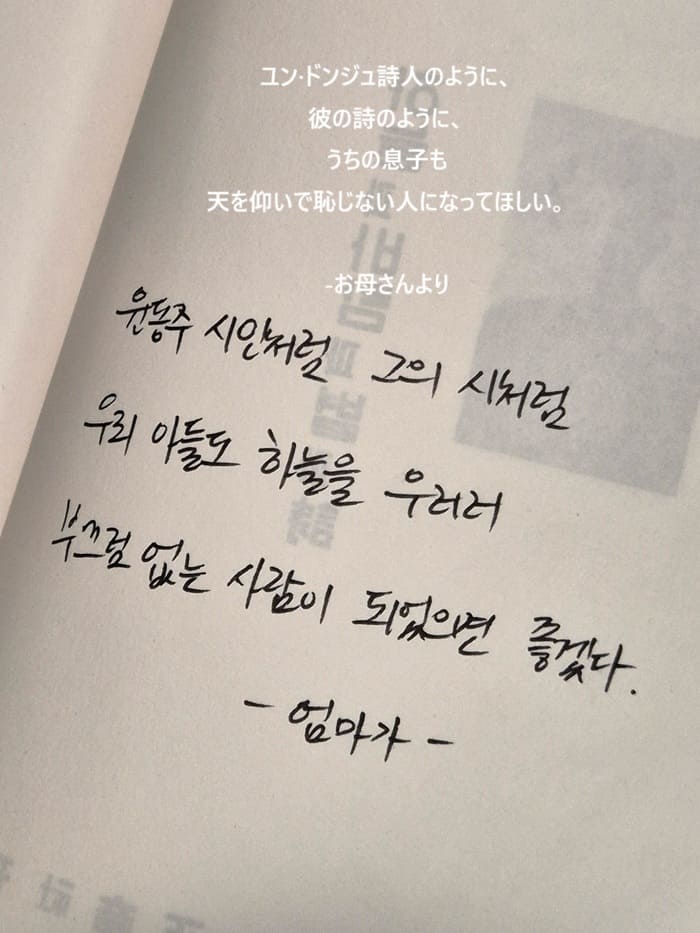 ユン·ドンジュ詩人のように、
彼の詩のように、
うちの息子も
天を仰いで恥じない人になってほしい。
-お母さんより
윤동주 시인처럼 그의 시처럼
우리 아들도 하늘을 우러러
부끄럼 없는 사람이 되었으면 좋겠다.
- 엄마가 -